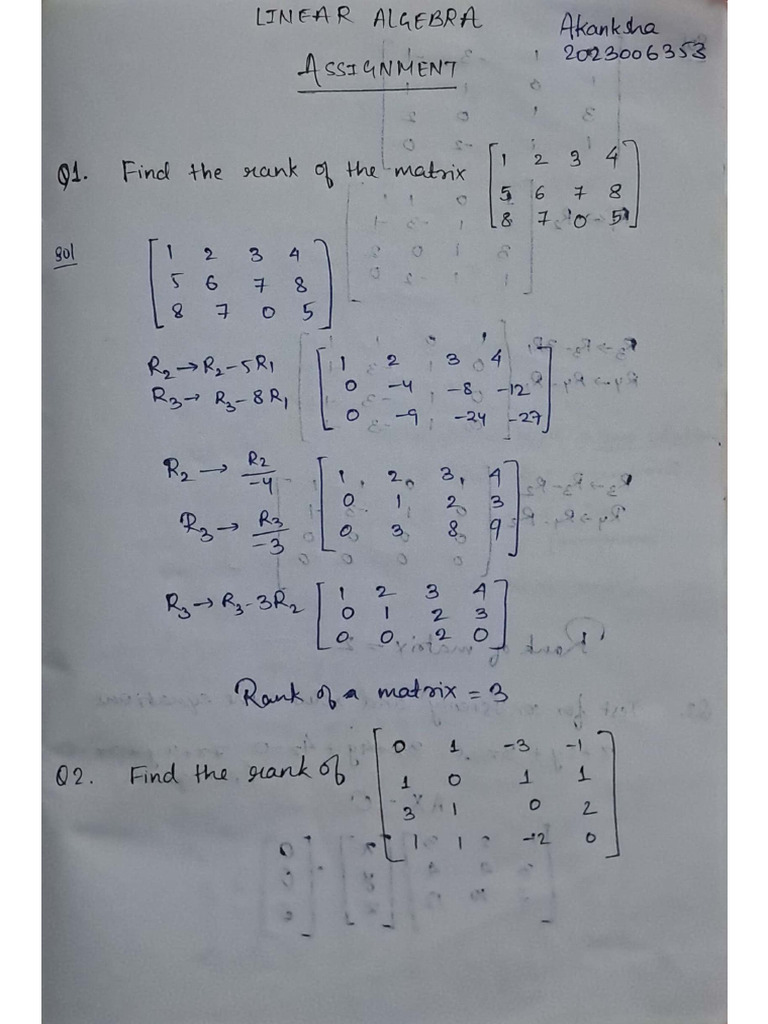 LINEAR ALGEBRA
Akanksha
2023006353
ASSIGNMENT
Q1. Find the rank of the matrix [1 2 3 4
5 6 7 8
8 7 0 5]
Sol
[1 2 3 4
5 6 7 8
8 7 0 5]
R2→R2-5R1 [1 2 3 4
R3→ R3-8R1 0 -4 -8 -12
0 -9 -24 -27]
R2 → R2/-4 [1 2 3 4
0 1 2 3
R3 → R3/-3 0 3 8 9]
R3→R3-3R2 [1 2 3 4
0 1 2 3
0 0 2 0]
Rank of a matrix = 3
Q2. Find the rank of [0 1 -3 -1
1 0 1 1
3 1 0 2
1 1 -2 0]